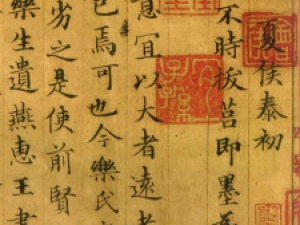 夏侯泰初
不時拔莒即墨為
意宜以大者遠者
已焉可也今樂氏
劣之是使前賢
樂生遺燕惠王書